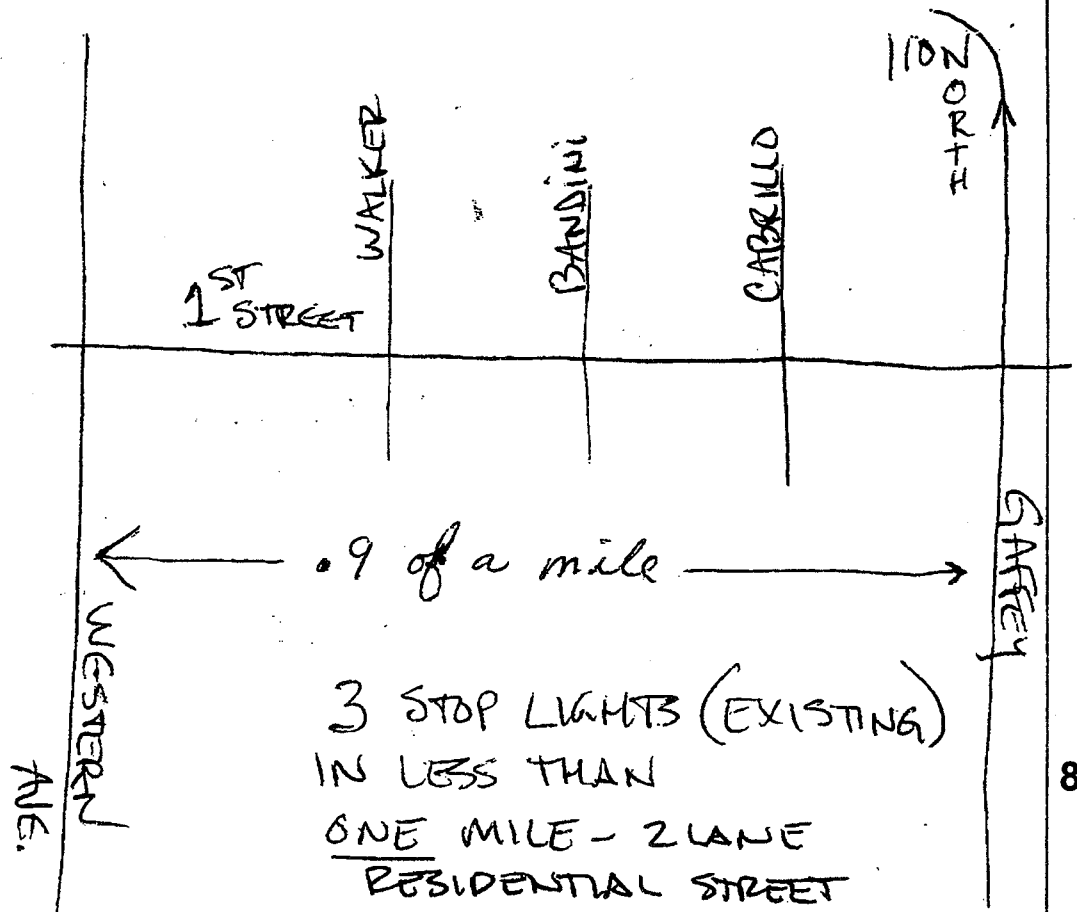 110 NORTH
WALKER
BANDINI
CABRILLO
1ST
STREET
GAFFEY
.9 of a mile
WESTERN
AVE.
3 STOP LIGHTS (EXISTING)
IN LESS THAN
ONE MILE - 2 LANE
RESIDENTIAL STREET
8